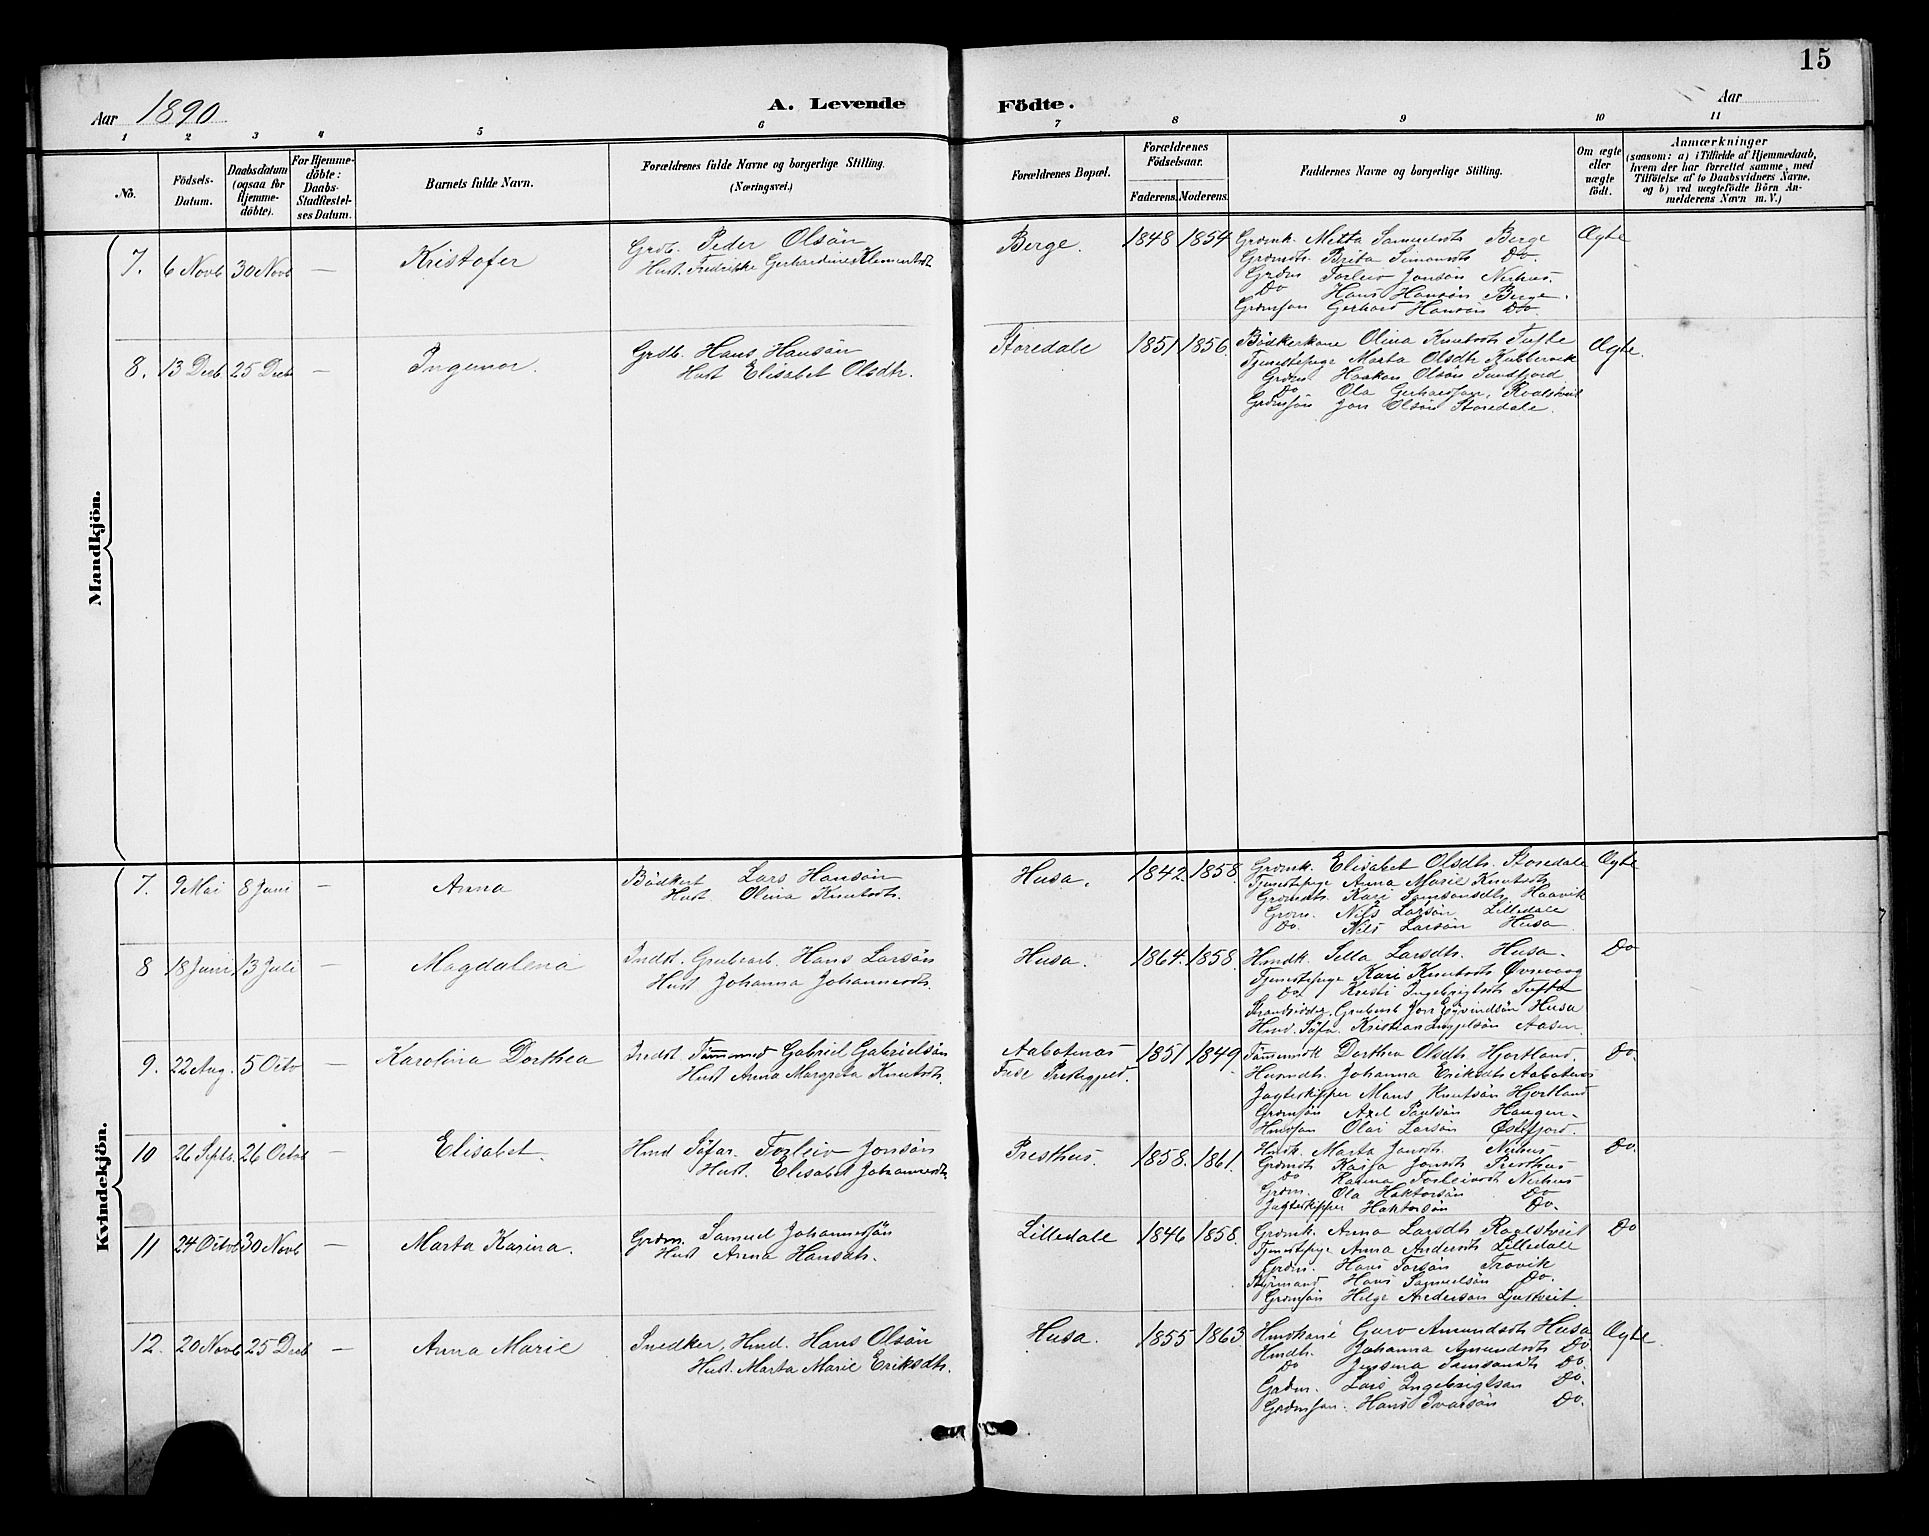 15
Aar 1890
A. Levende
Födte.
Aar
1 2 3 4 5 6 7 8 9 10 11
No.
Födsels-
Datum.
Daabsdatum
(ogsaa for
Hjemme-
döbte).
For Hjemme-
döbte:
Daabs-
Stadfæstel-
ses Datum.
Barnets fulde Navn.
Forældrenes fulde Navne og borgerlige Stilling.
(Næringsvei.)
Forældrenes Bopæl.
Forældrenes
Födselsaar.
Faderens.
Moderens.
Faddernes Navne og borgerlige Stilling.
Om ægte
eller
uægte
født.
Anmærkninger
(saasom: a) i Tilfælde af Hjemmedaab,
hvem der har forrettet samme, med
Tilföielse af to Daabsvidners Navne,
og b) ved uægtefödte Börn An-
melderens Navn m. V.)
Mandkjön.
7. 6 Novb 30 Novb — Kristofer
Grdb. Peder Olsön
Hust. Fredrikke Gerhardine Klementsdt.
Berge. 1848 1854
Grdmk. Metta Samuelsdt Berge
Grdmdt. Brita Simonsdt Do.
Grdm Torleiv Jonsön Nerhus.
Do Hans Hansön Berge.
Grdmsøn Gerhard Hansön Do
Ægte
8. 13 Decb 25 Decb — Ingemar.
Grdb. Hans Hansön
Hust Elisabet Olsdtr.
Storedale 1851 1856.
Bödkerkone Olina Knutsdt Tufte
Tjenestepige Marta Olsdtr
Grdm. Haakon Olsön Sundfjord
Do Ola Gerhardsøn,
Grdmsön Jon Olsön Storedale.
Ægte.
Kvindekjön.
7. 9 Mai 8 Juni — Anna
Bödkert Lars Hansön
Hust. Olina Knutsdt.
Husa. 1842. 1858.
Grdmk. Elisabet Olsdtr. Storedale
Tjenestepige Anna Marie Knutsdt
Grdmdt. Kari Samsonsdt Haavik
Grdm. Nils Larsön Lilledale
Do. Nils Larsön Husa
Ægte
8 18 Juni 13 Juli — Magdalena
Indst. Grubearb. Hans Larsön
Hust Johanna Johannesdt.
Husa. 1864. 1858.
Hmdk. Sella Larsdtr. Husa.
Tjenestepige Kari Knutsdt Øvrevaag
Do Kristi Ingebrigtsdt Tufta
Strandsidder, Grubearb Jon Eyvindsön Husa
Hmd. Söfa. Kristian Aasen
Do
9. 22 Aug. 5 Octo — Karolina Dorthea
Indst. Tömmermd Gabriel Gabrielsön
Hust Anna Margreta Knutsdt.
Aabotenas
Fuse Prestegjeld. 1851 1849.
Tömmermdk Dorthea Olsdtr. Hjortland.
Husmdt. Johanna Eriksdt Aabotenes
Jagteskipper Mans Knutsön Hjortland
Grdmsön Axel Paulsön Haugen.
Hmdsøn Olai Larsön Østefjord.
Do
10 26 Septr. 26 Octob — Elisabet.
Hmd Söfar. Torleiv Jonsön
Hust. Elisabet Johannesdt.
Presthus. 1858. 1861.
Hmdk. Marta Jonsdt. Nerhus
Grdmdt Kaisa Jonsdt. Presthus
Do Karina Torleivsdt Nerhus
Grdm. Ola Haktorsön Do
Jagteskipper Haktorsön Do.
Do.
11 24 Octob 30 Novb — Marta Karina.
Grdm. Samuel Johannessön
Hust Anna Hansdt.
Lilledale 1846 1858.
Grdmk. Anna Larsdtr.
Tjenestepige Anna Andersdt Lilledale
Grdm. Hans Torsön Trovik
Styrmand Hans Samuelsön Do.
Grdmsön Helge Andersön
Do
12. 20 Novb 25 Decb — Anna Marie
Snedker, Hmd. Hans Olsön
Hust. Marta Marie Eriksdtr.
Husa. 1855 1863.
Hmdkone Guro Amundsdt Husa
Hmdtr. Johanna Amundsdt Do.
Do Jensina Samsonsdt Do.
Grdm. Lars Ingebrigtsøn Do.
Grdmsøn. Hans Ivarsön Do.
Ægte.